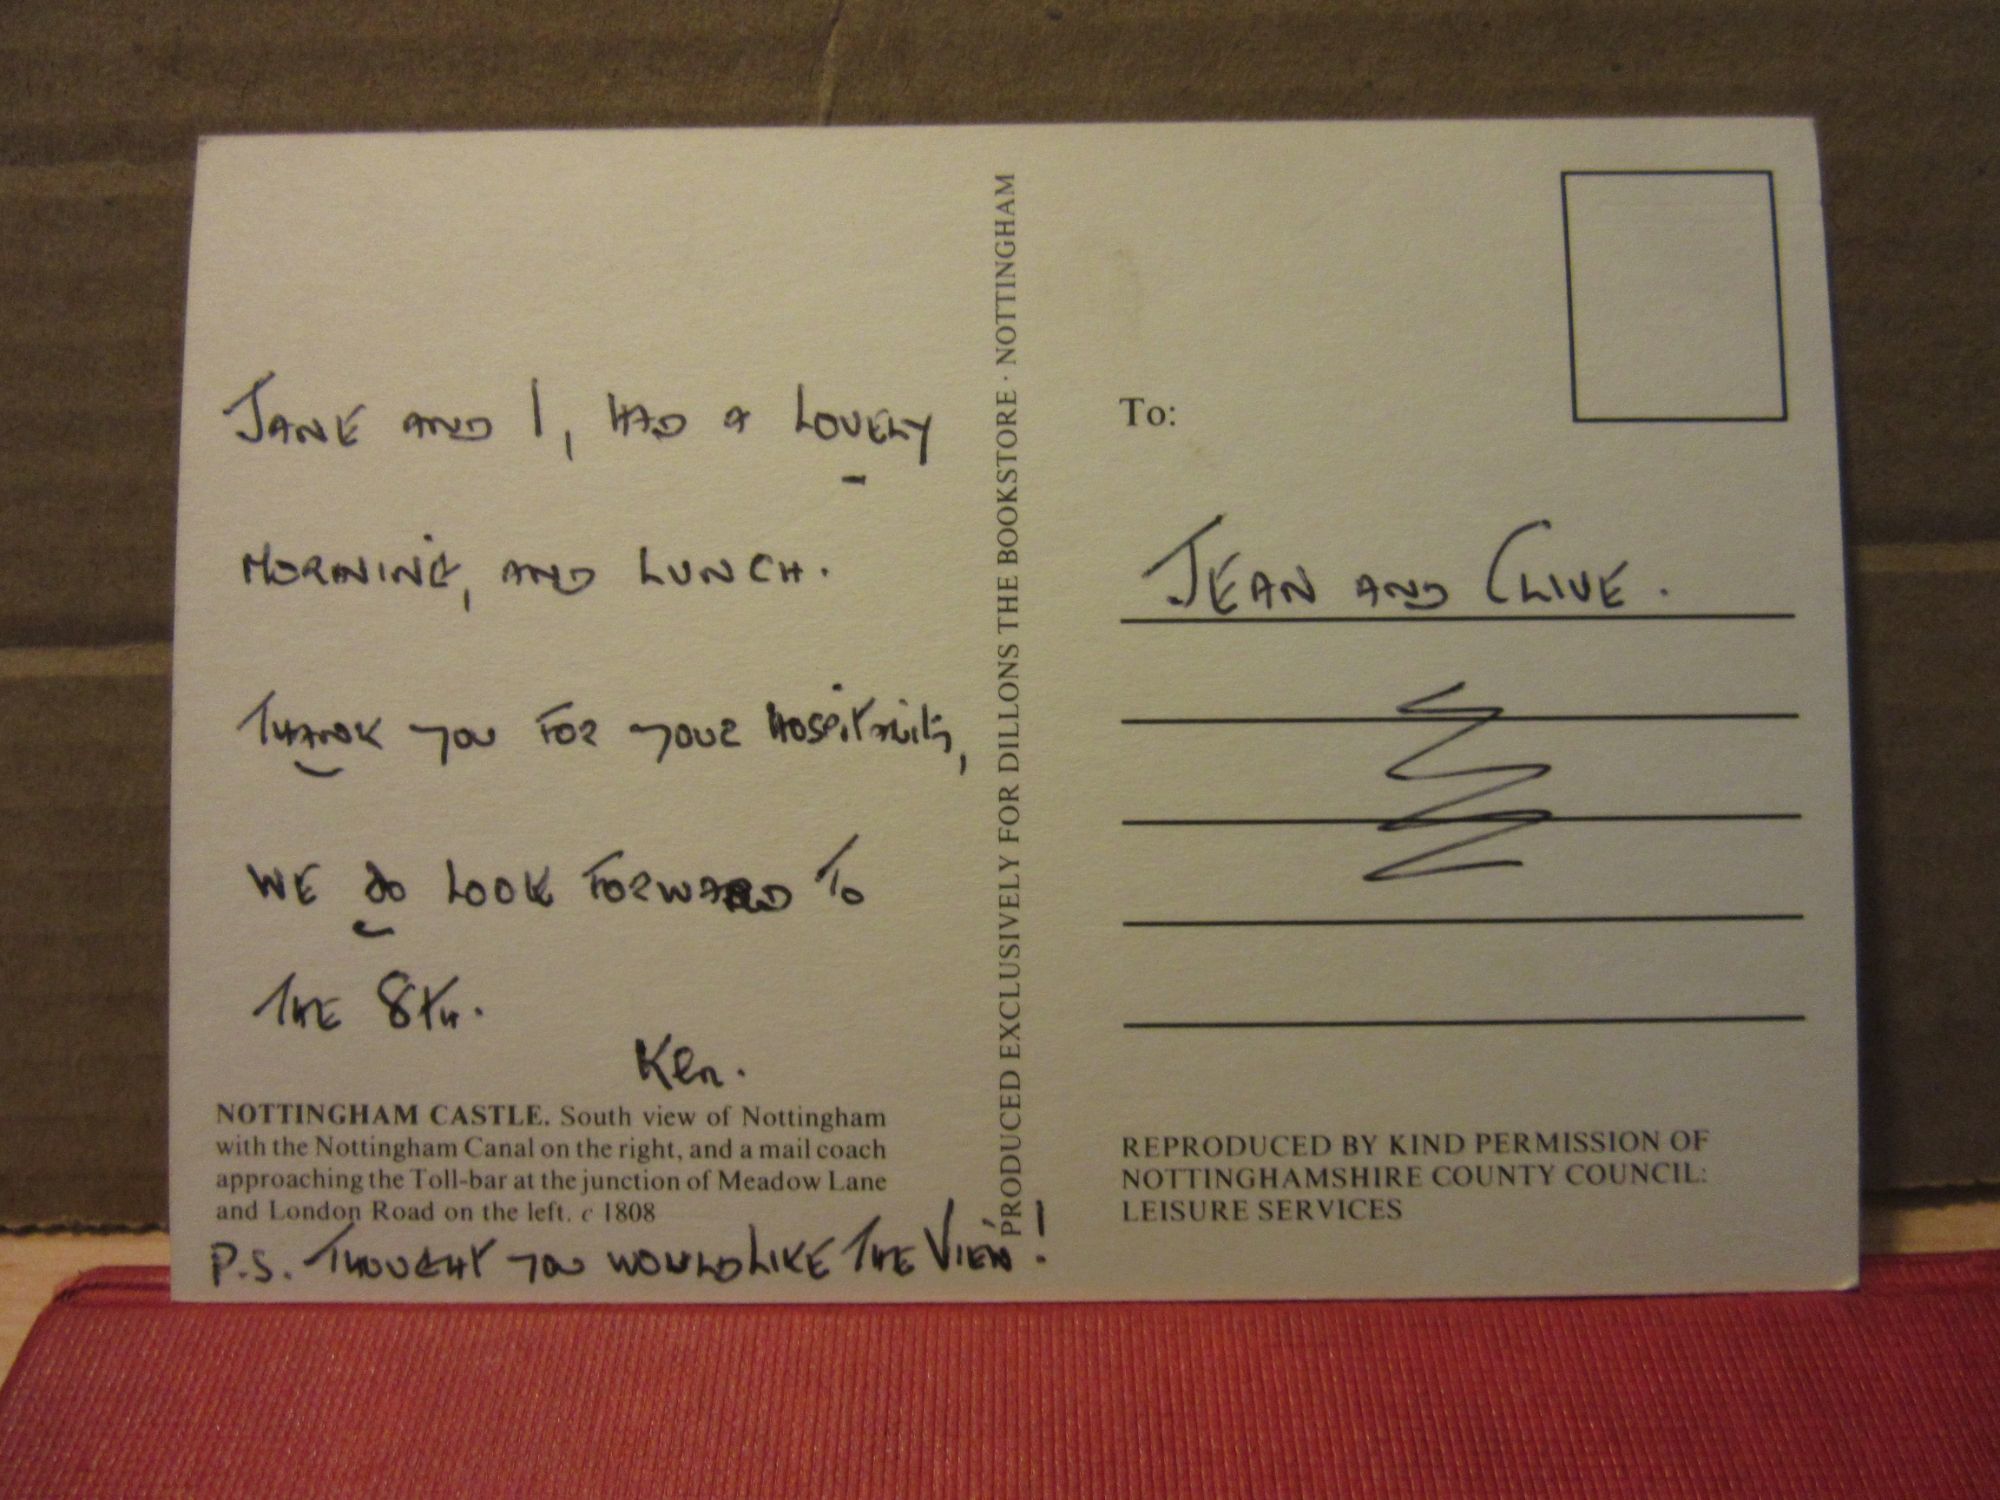 JANE AND I, HAD A LOVELY
MORNING, AND LUNCH.
THANK YOU FOR YOUR HOSPITALITY,
WE do LOOK FORWARD TO
THE 8TH.
Ken.
NOTTINGHAM CASTLE. South view of Nottingham
with the Nottingham Canal on the right, and a mail coach
approaching the Toll-bar at the junction of Meadow Lane
and London Road on the left. c 1808
P.S. THOUGHT YOU WOULD LIKE THE VIEW!
PRODUCED EXCLUSIVELY FOR DILLONS THE BOOKSTORE · NOTTINGHAM
To:
JEAN AND CLIVE.
REPRODUCED BY KIND PERMISSION OF
NOTTINGHAMSHIRE COUNTY COUNCIL:
LEISURE SERVICES